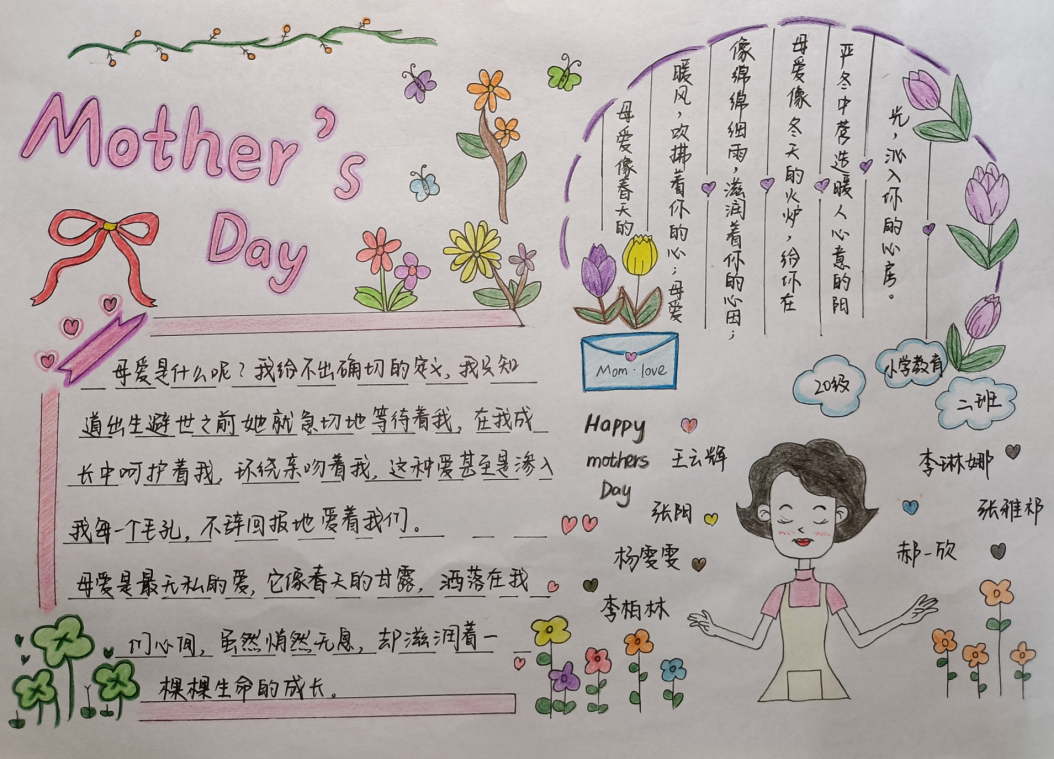 Mother's
Day
母爱是什么呢？我给不出确切的定义，我只知
道出生避世之前她就急切地等待着我，在我成
长中呵护着我，环绕亲吻着我，这种爱甚至是渗入
我每一个毛孔，不辞回报地爱着我们。
母爱是最无私的爱，它像春天的甘露，洒落在我
们心间，虽然悄然无息，却滋润着一
棵棵生命的成长。
母爱像春天的
暖风，吹拂着你的心；母爱
像绵绵细雨，滋润着你的心田；
母爱像冬天的火炉，给你在
严冬中营造暖人心意的阳
光，沁入你的心房。
Mom·love
20级
小学教育
二班
Happy
mothers
Day
王云辉
张阳
杨雯雯
李柏林
李琳娜
张雅祁
郝一欣